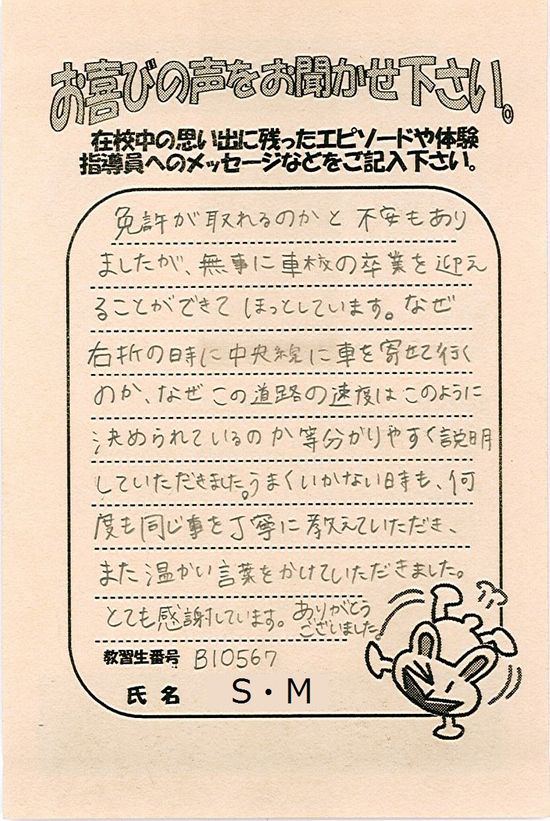 お喜びの声をお聞かせ下さい。
在校中の思い出に残ったエピソードや体験
指導員へのメッセージなどをご記入下さい。
免許が取れるのかと不安もあり
ましたが、無事に車校の卒業を迎え
ることができてほっとしています。なぜ
右折の時に中央線に車を寄せて行く
のか、なぜこの道路の速度はこのように
決められているのか等分かりやすく説明
していただきました。うまくいかない時も、何
度も同じ事を丁寧に教えていただき、
また温かい言葉をかけていただきました。
とても感謝しています。ありがとう
ございました
教習生番号 B10567
氏名 S・M